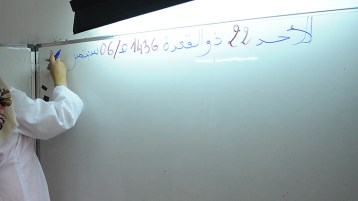 الأحد 22 ذو القعدة 1436 هـ/06 سبتمبر